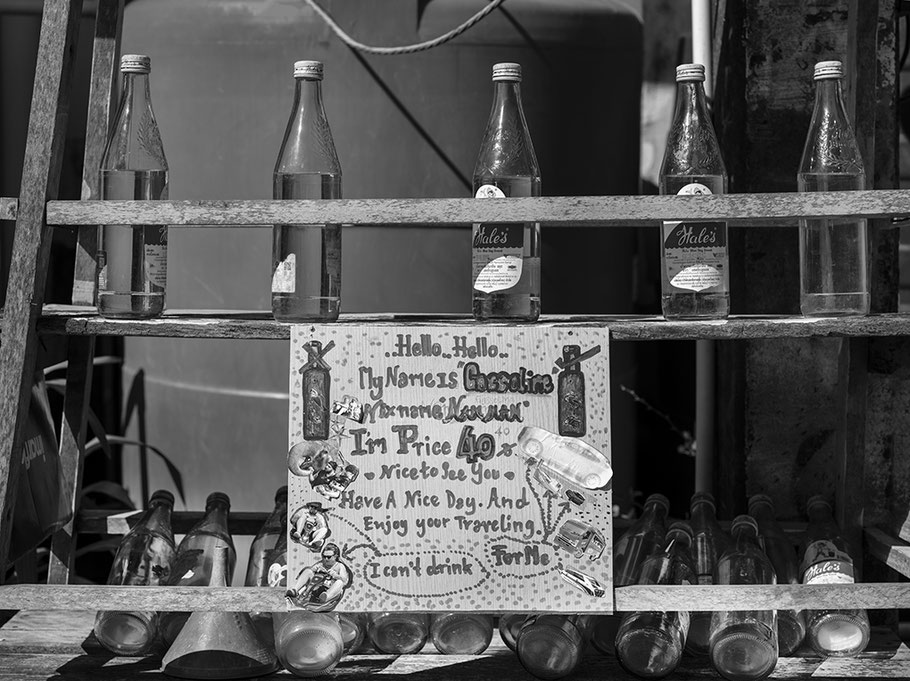 Hale's
Hale's
..Hello..Hello..
My Name is "Gassoline
Nixname "Nammam"
I'm Price 40
Nice to See You
Have A Nice Day. And
Enjoy your Traveling.
I can't drink
For Me
Hale's